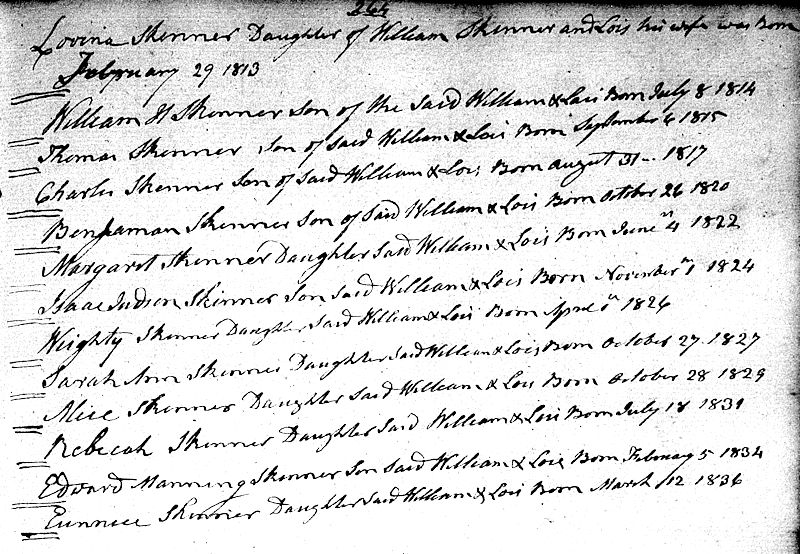 264
Lovina Skinner Daughter of William Skinner and Lois his wife was Born
February 29 1813
William H Skinner Son of the Said William & Lois Born July 8 1814
Thomas Skinner Son of Said William & Lois Born September 6 1815
Charles Skinner Son of Said William & Lois Born August 31 1817
Benjaman Skinner Son of Said William & Lois Born October 26 1820
Margaret Skinner Daughter Said William & Lois Born June 4 1822
Isaac Judson Skinner Son Said William & Lois Born November 1 1824
Weighty Skinner Daughter Said William & Lois Born April 1826
Sarah Ann Skinner Daughter Said William & Lois Born October 27 1827
Alice Skinner Daughter Said William & Lois Born October 28 1829
Rebecah Skinner Daughter Said William & Lois Born July 18 1831
Edward Manning Skinner Son Said William & Lois Born February 5 1834
Eunnice Skinner Daughter Said William & Lois Born March 12 1836